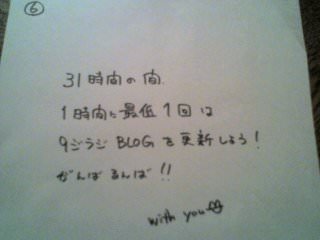 ⑥
31時間の間
1時間に最低1回は
9ジラジBLOGを更新しよう!
がんばるんば!!
with you